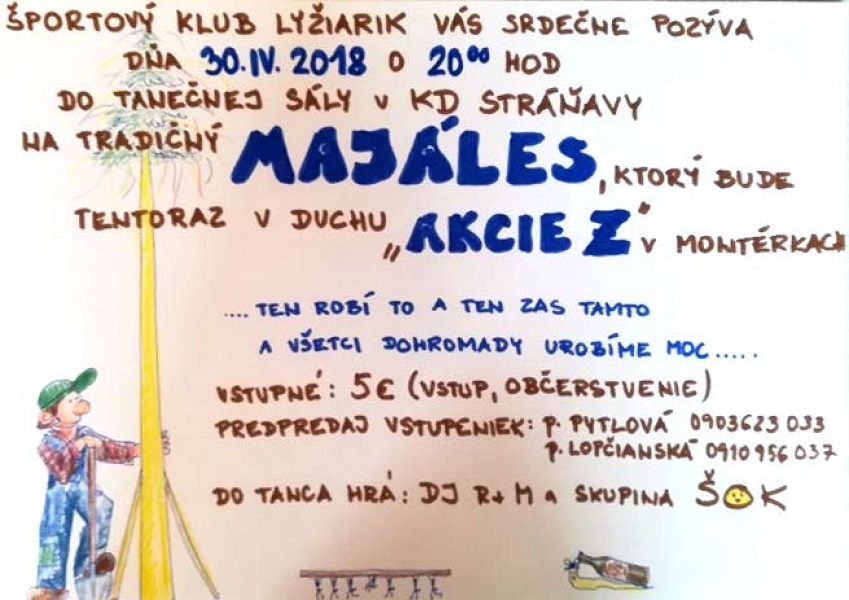 ŠPORTOVÝ KLUB LYŽIARIK VÁS SRDEČNE POZÝVA
DŇA 30.IV. 2018 O 20⁰⁰ HOD
DO TANEČNEJ SÁLY V KD STRÁŇAVY
NA TRADIČNÝ MAJÁLES, KTORÝ BUDE
TENTORAZ V DUCHU „AKCIE Z" V MONTÉRKACH
.... TEN ROBÍ TO A TEN ZAS TAMTO
A VŠETCI DOHROMADY UROBÍME MOC.....
VSTUPNÉ: 5€ (VSTUP, OBČERSTVENIE)
PREDPREDAJ VSTUPENIEK: p. PYTLOVÁ 0903623 033
p. LOPČIANSKÁ 0910 956 037
DO TANCA HRÁ: DJ R+M a SKUPINA ŠOK